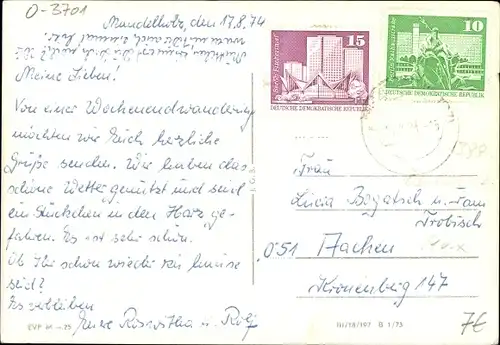 O-3701
Mandelholz, den 17.8.74
Meine Lieben!
Von einer Wochenendwanderung
möchten wir Euch herzliche
Grüße senden. Wir haben das
schöne Wetter genutzt und sind
ein Stückchen in den Harz ge-
fahren. Es ist sehr schön.
Ob Ihr schon wieder zu Hause
seid?
Es verbleiben
Eure Roswitha u. Rolf
EVP M -,25
15
Berlin, Fischerinsel
DEUTSCHE DEMOKRATISCHE REPUBLIK
10
DEUTSCHE DEMOKRATISCHE REPUBLIK
Frau
Lucia Bogatsch u. Fam
Trobisch
051 Aachen
Kronenberg 147
III/18/197 B 1/73
7€